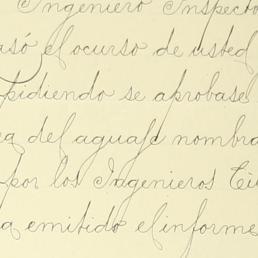 Ingeniero Inspecto
asó el ocurso de usted
pidiendo se aprobase
ea del aguaje nombra
por los Ingenieros Ci
a emitido el informe